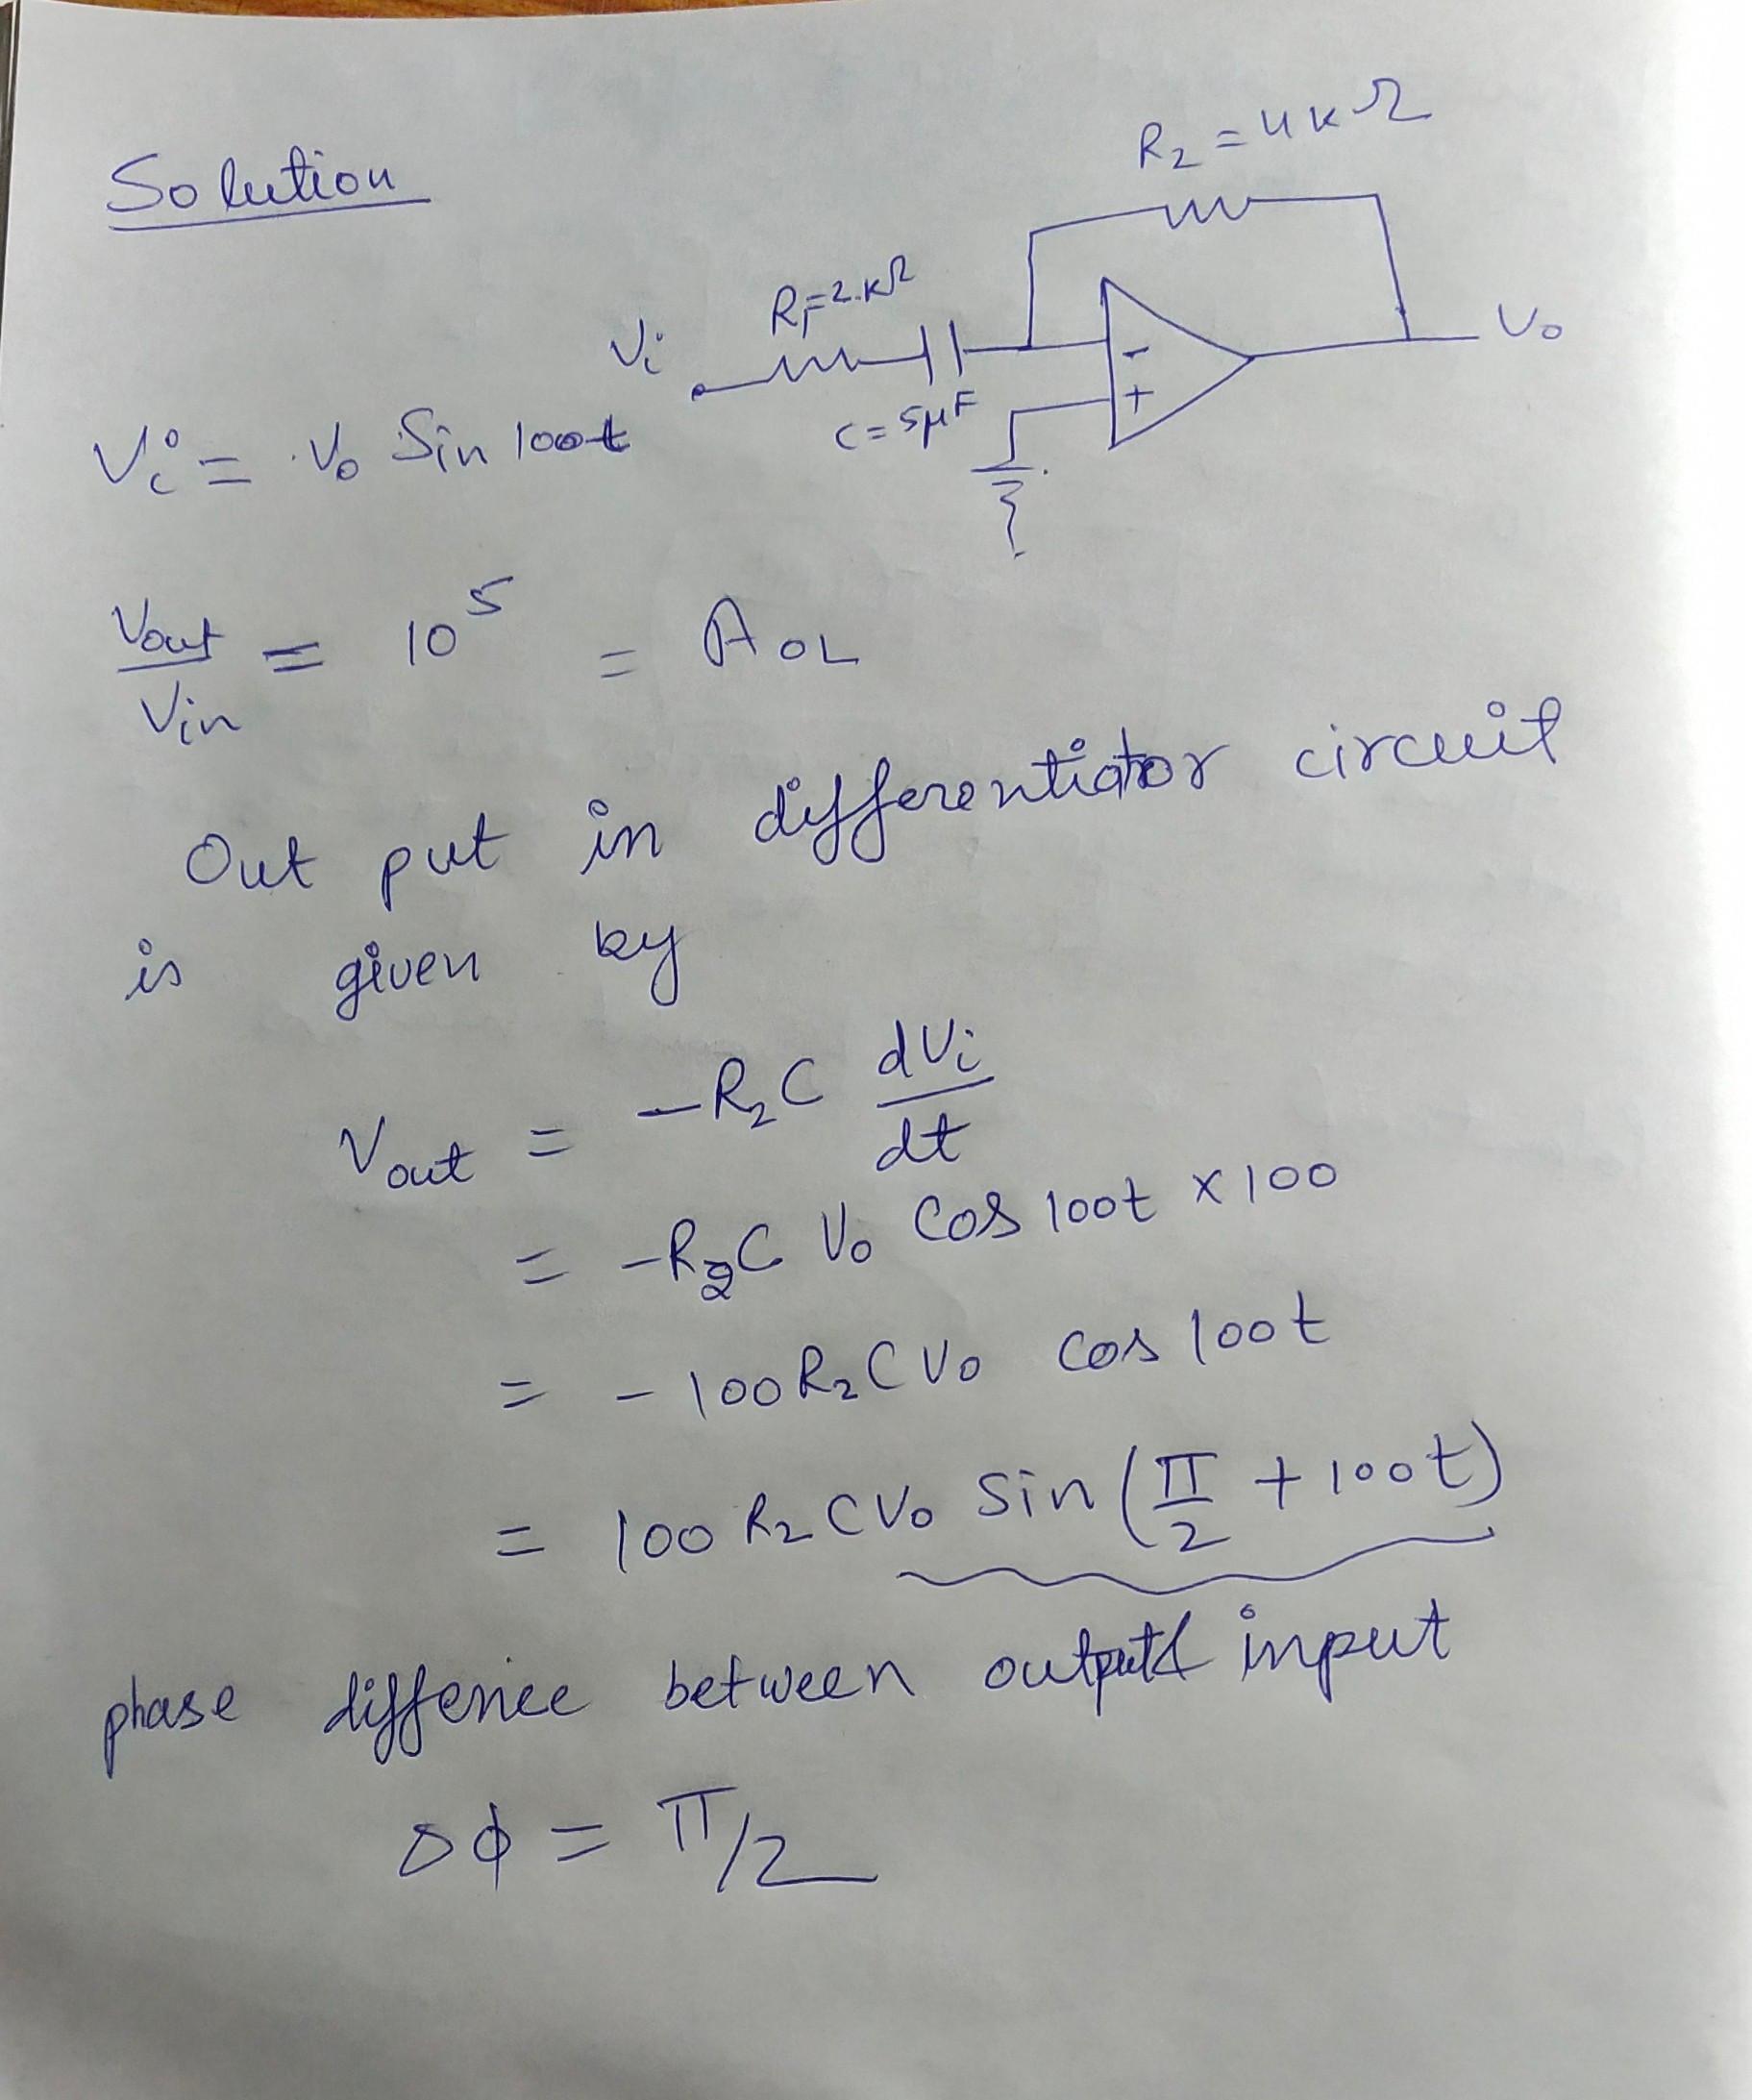 Solution
R₂ = 4KΩ
R₁=2.KΩ
Vi
Vo
C = 5μF
- 
+
Vi = V₀ Sin 100t
Vout/Vin = 10⁵ = A OL
Out put in differentiator circuit
is given by
Vout = -R₂C dVi/dt
= -R₂C V₀ Cos 100t × 100
= - 100R₂CV₀ Cos 100t
= 100 R₂ CV₀ Sin (π/2 + 100t)
phase differnce between output & input
Δϕ = π/2